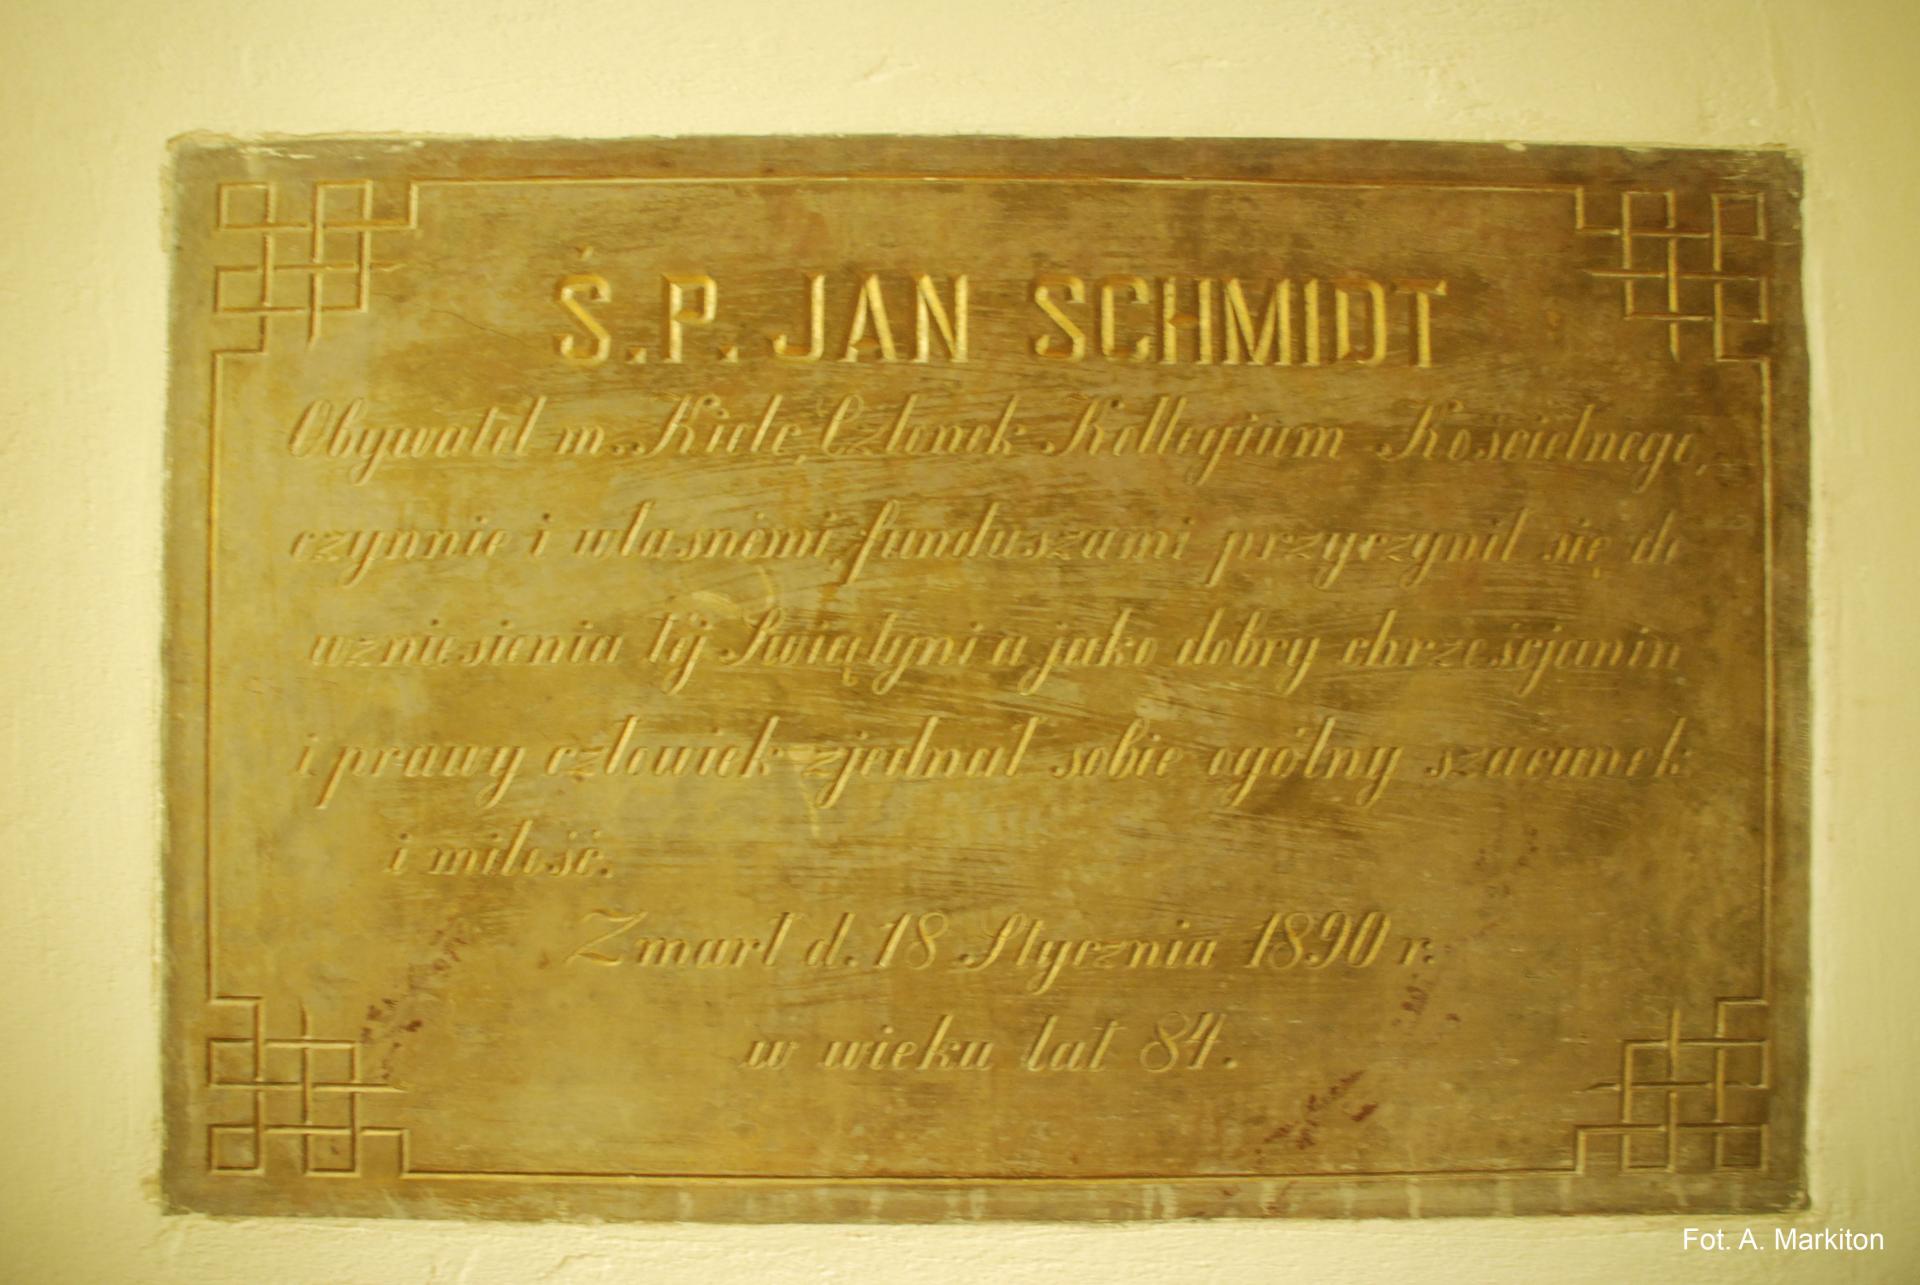 Ś.P. JAN SCHMIDT
Obywatel m. Kielc, Członek Kollegium Kościelnego,
czynnie i własnémi funduszami przyczynił się do
wzniesienia téj Świątyni a jako dobry chrześcjanin
i prawy człowiek zjednał sobie ogólny szacunek
i miłość.
Zmarł d. 18 Stycznia 1890 r.
w wieku lat 84.
Fot. A. Markiton